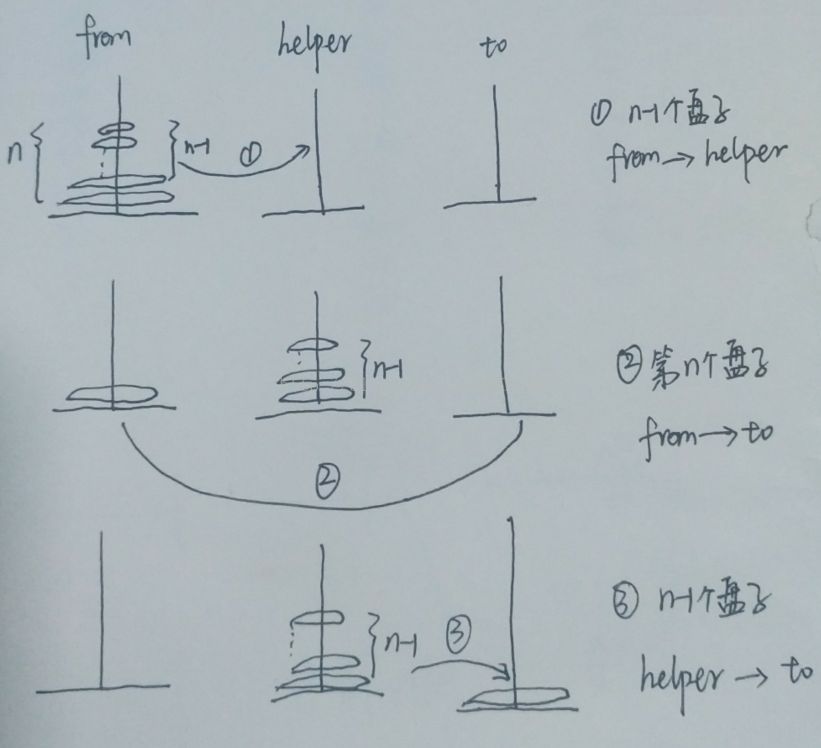 from helper to
n n-1 ① ① n-1个盘子
from→helper
n-1 ②第n个盘子
from→to
②
③ n-1个盘子
n-1 ③
helper→to